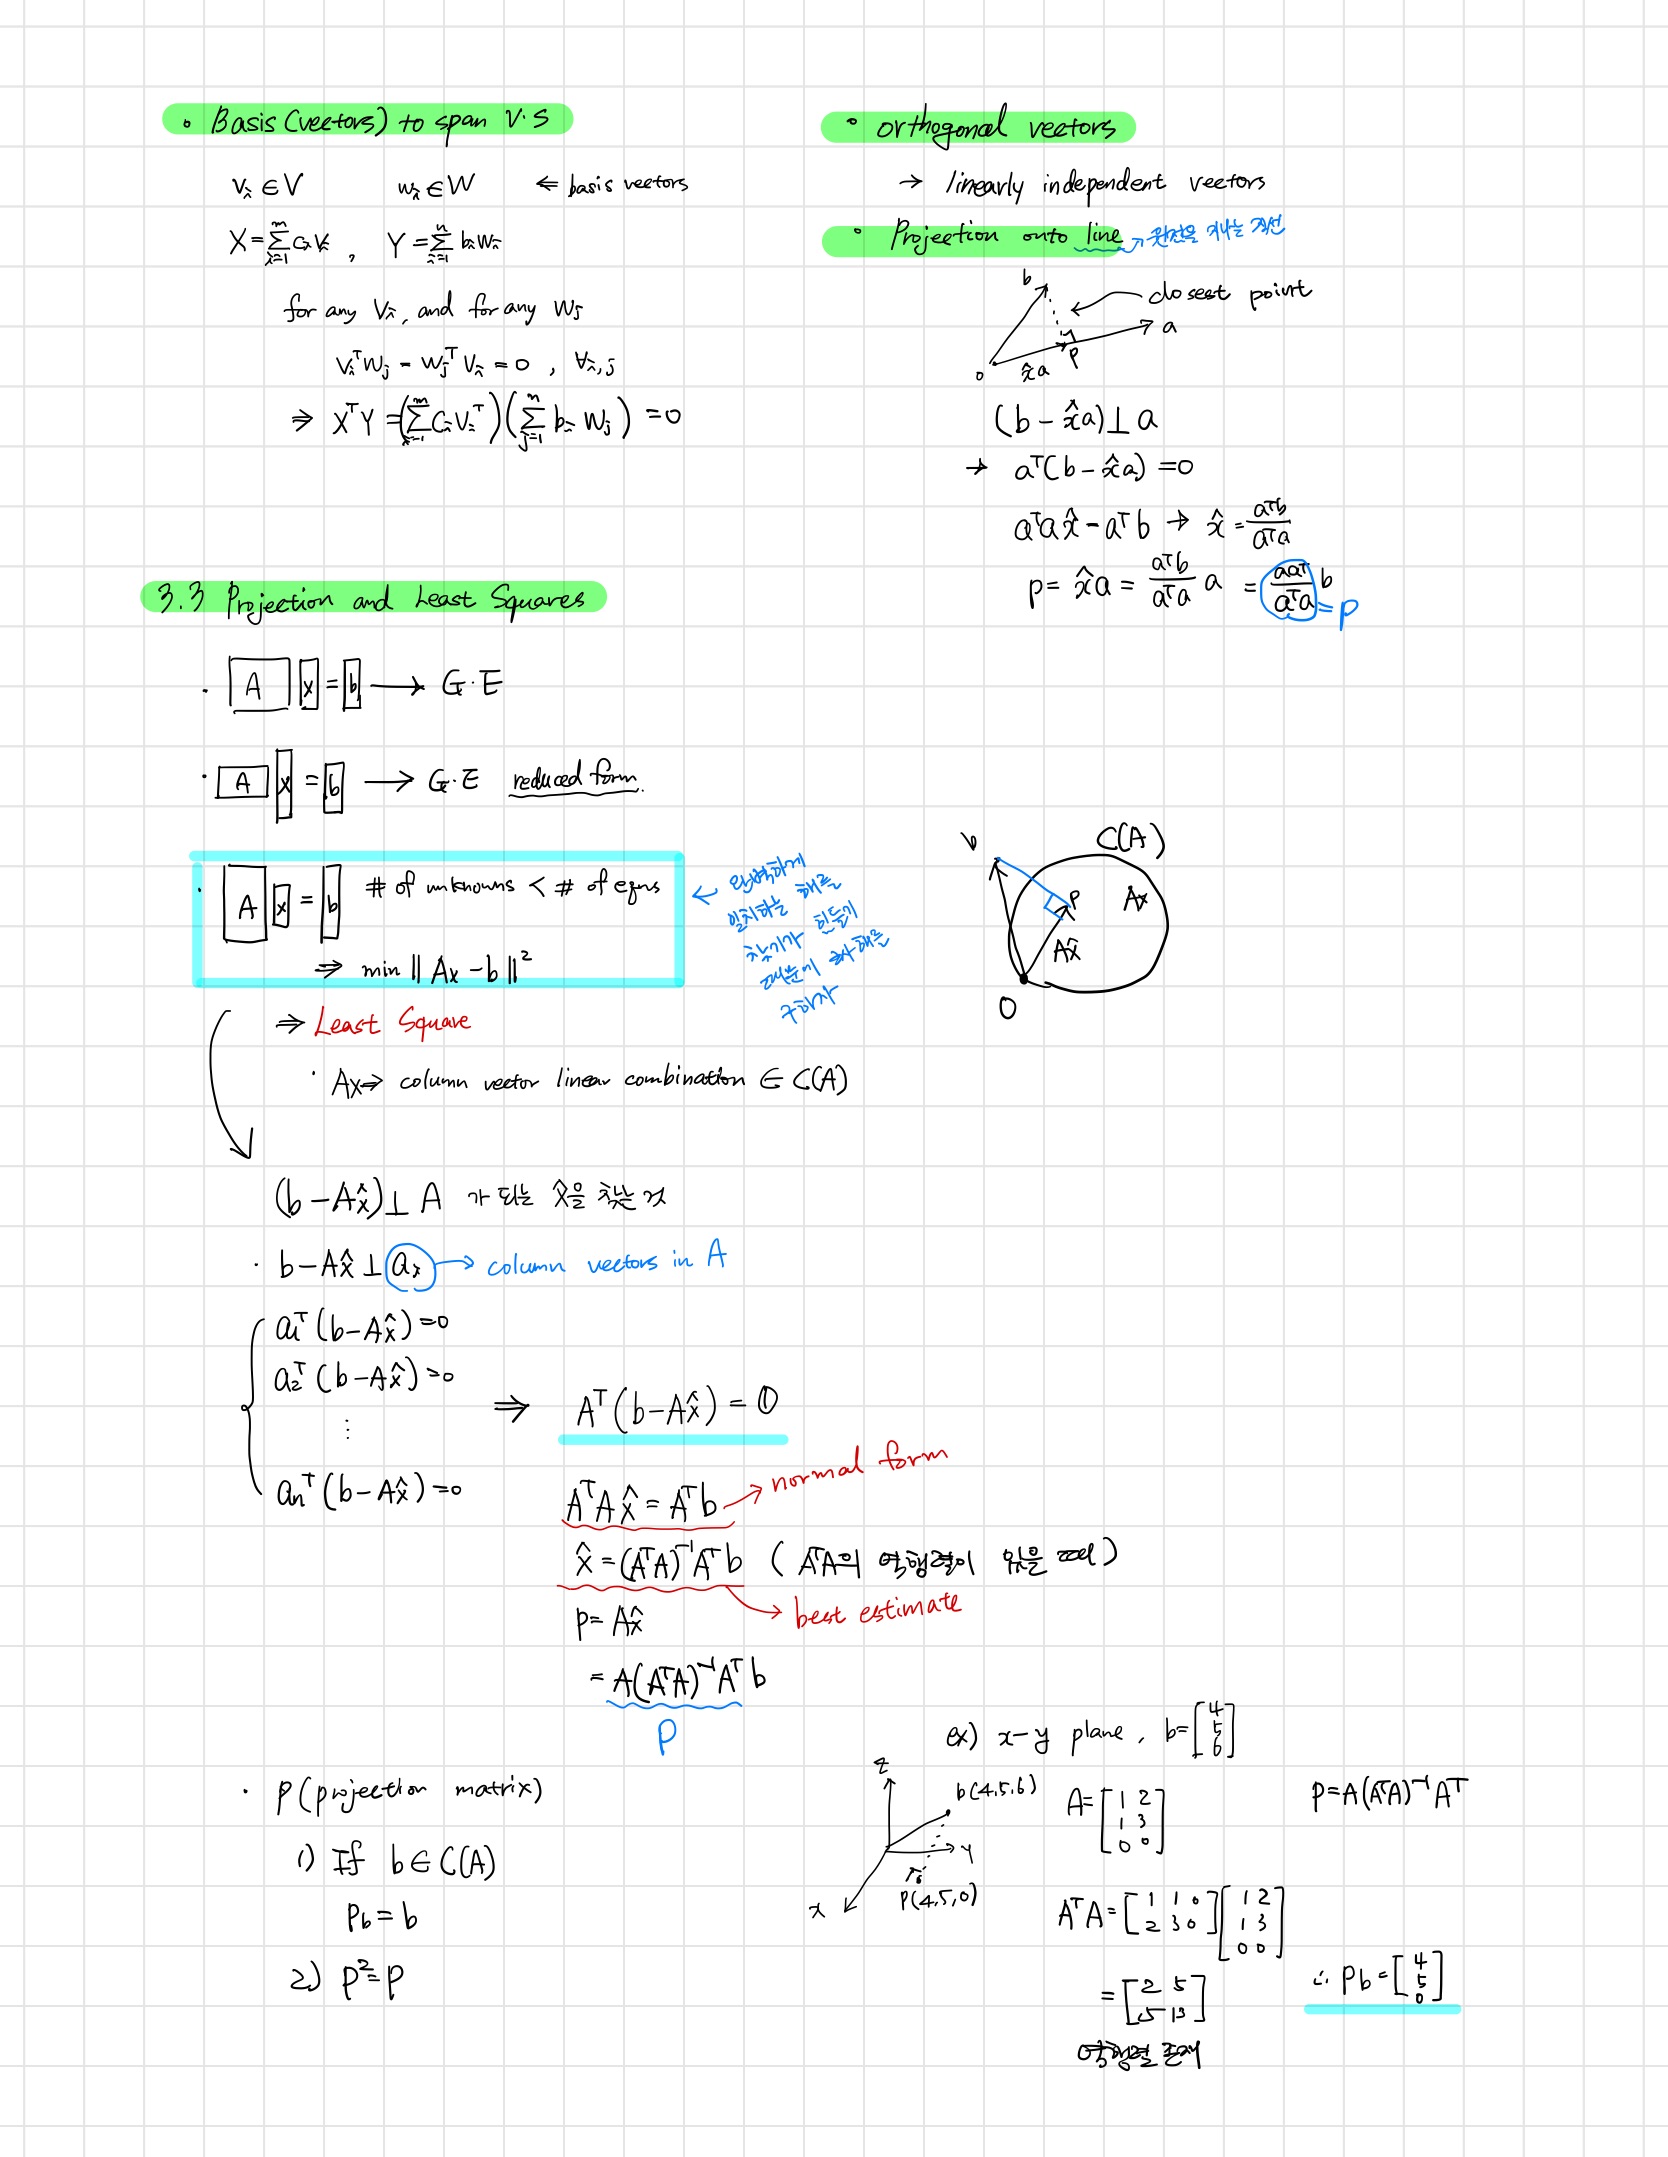 • Basis(vectors) to span V.S
vᵢ ∈ V    wᵢ ∈ W    ⇐ basis vectors
X = Σᵢ₌₁ᵐ cᵢvᵢ , Y = Σᵢ₌₁ⁿ bᵢwᵢ
for any vᵢ, and for any wⱼ
vᵢᵀwⱼ = wⱼᵀvᵢ = 0 , ∀i,j
⇒ XᵀY = (Σᵢ₌₁ᵐ cᵢvᵢᵀ)(Σⱼ₌₁ⁿ bᵢ wⱼ) = 0
• orthogonal vectors
→ linearly independent vectors
• Projection onto line → 원점을 지나는 직선
b
closest point
a
p
o
x̂a
(b - x̂a) ⊥ a
→ aᵀ(b - x̂a) = 0
aᵀa x̂ = aᵀb → x̂ = aᵀb / aᵀa
p = x̂a = (aᵀb / aᵀa) a = (aaᵀ / aᵀa) b
= P
3.3 Projection and Least Squares
• A x = b → G.E
• A x = b → G.E reduced form.
• A x = b # of unknowns < # of eqns
⇒ min ‖Ax - b‖²
← 완벽하게
일치하는 해를
찾기가 힘들기
때문에 근사해를
구하자
b
C(A)
p
Ax
Ax̂
O
⇒ Least Square
• Ax ⇒ column vector linear combination ∈ C(A)
(b - Ax̂) ⊥ A 가 되는 x̂을 찾는 것
• b - Ax̂ ⊥ aᵢ → column vectors in A
a₁ᵀ(b - Ax̂) = 0
a₂ᵀ(b - Ax̂) = 0
⋮
aₙᵀ(b - Ax̂) = 0
⇒ Aᵀ(b - Ax̂) = 0
AᵀAx̂ = Aᵀb → normal form
x̂ = (AᵀA)⁻¹Aᵀb ( AᵀA의 역행렬이 있을 때 )
→ best estimate
p = Ax̂
= A(AᵀA)⁻¹Aᵀ b
P
• P(projection matrix)
1) If b ∈ C(A)
Pb = b
2) P² = P
ex) x-y plane, b = [4 5 6]
z
b(4,5,6)
y
x
P(4,5,0)
A = [1 2
1 3
0 0]
P = A(AᵀA)⁻¹Aᵀ
AᵀA = [1 1 0; 2 3 0] [1 2; 1 3; 0 0]
= [2 5
5 13]
역행렬 존재
∴ Pb = [4 5 0]